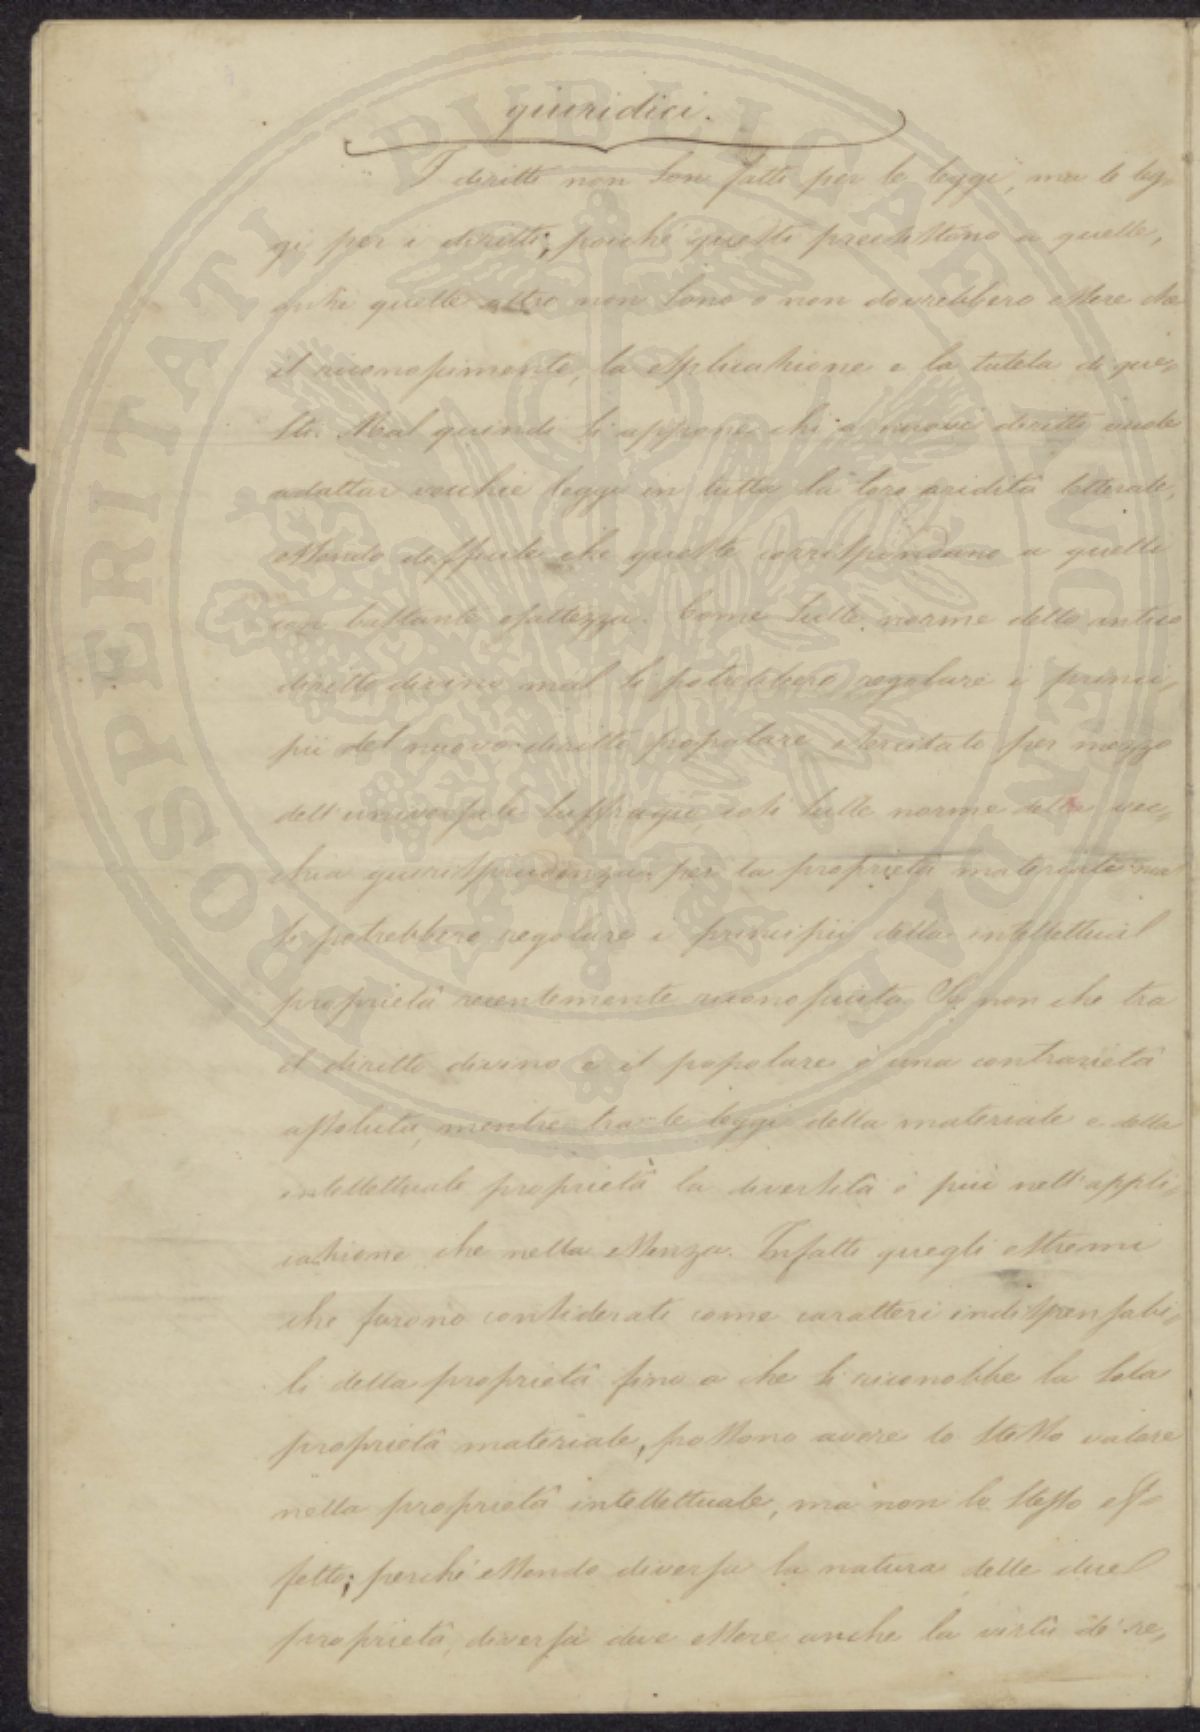 giuridici.
I diritti non son fatti per le leggi, ma le leg-
gi per i diritti; poiché questi preesistono a quelle,
anzi quelle altro non sono o non dovrebbero essere che
il riconoscimento, la esplicazione e la tutela di que-
sti. Mal quindi si appone chi a nuovi diritti vuole
adattar vecchie leggi in tutta la loro aridità letterale,
essendo difficile che queste corrispondano a quelli
con bastante esattezza. Come sulle norme dello antico
diritto divino mal si potrebbero regolare i princi-
pii del nuovo diritto popolare esercitato per mezzo
dell'universale suffragio, così sulle norme della vec-
chia giurisprudenza per la proprietà materiale mal
si potrebbero regolare i principii della intellettual
proprietà recentemente riconosciuta. Se non che tra
il diritto divino e il popolare è una contrarietà
assoluta, mentre tra le leggi della materiale e della
intellettuale proprietà la diversità è più nell'appli-
cazione che nella essenza. Infatti quegli estremi
che furono considerati come caratteri indispensabi-
li della proprietà fino a che si riconobbe la sola
proprietà materiale, possono avere lo stesso valore
nella proprietà intellettuale, ma non lo stesso ef-
fetto; perché essendo diversa la natura delle due
proprietà, diversa deve essere anche la virtù di re-
PROSPERITATI PUBLICAE AUGENDAE